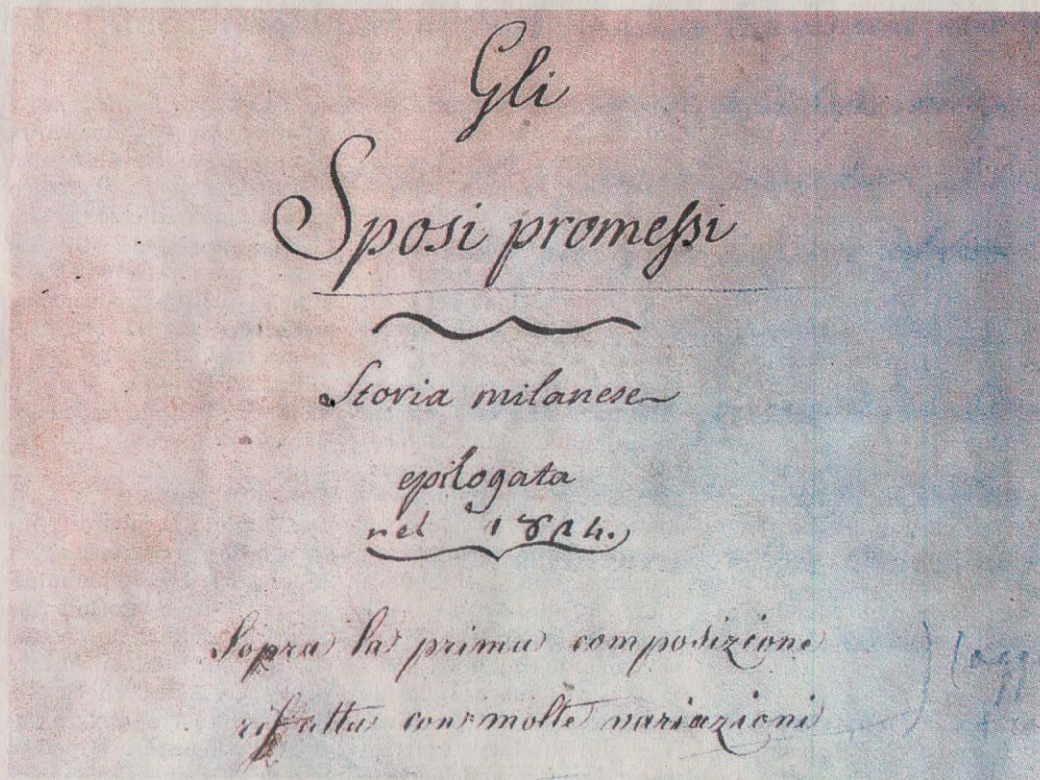 Gli
Sposi promessi
Storia milanese
epilogata
nel 1824.
Sopra la prima composizione
rifatta con molte variazioni